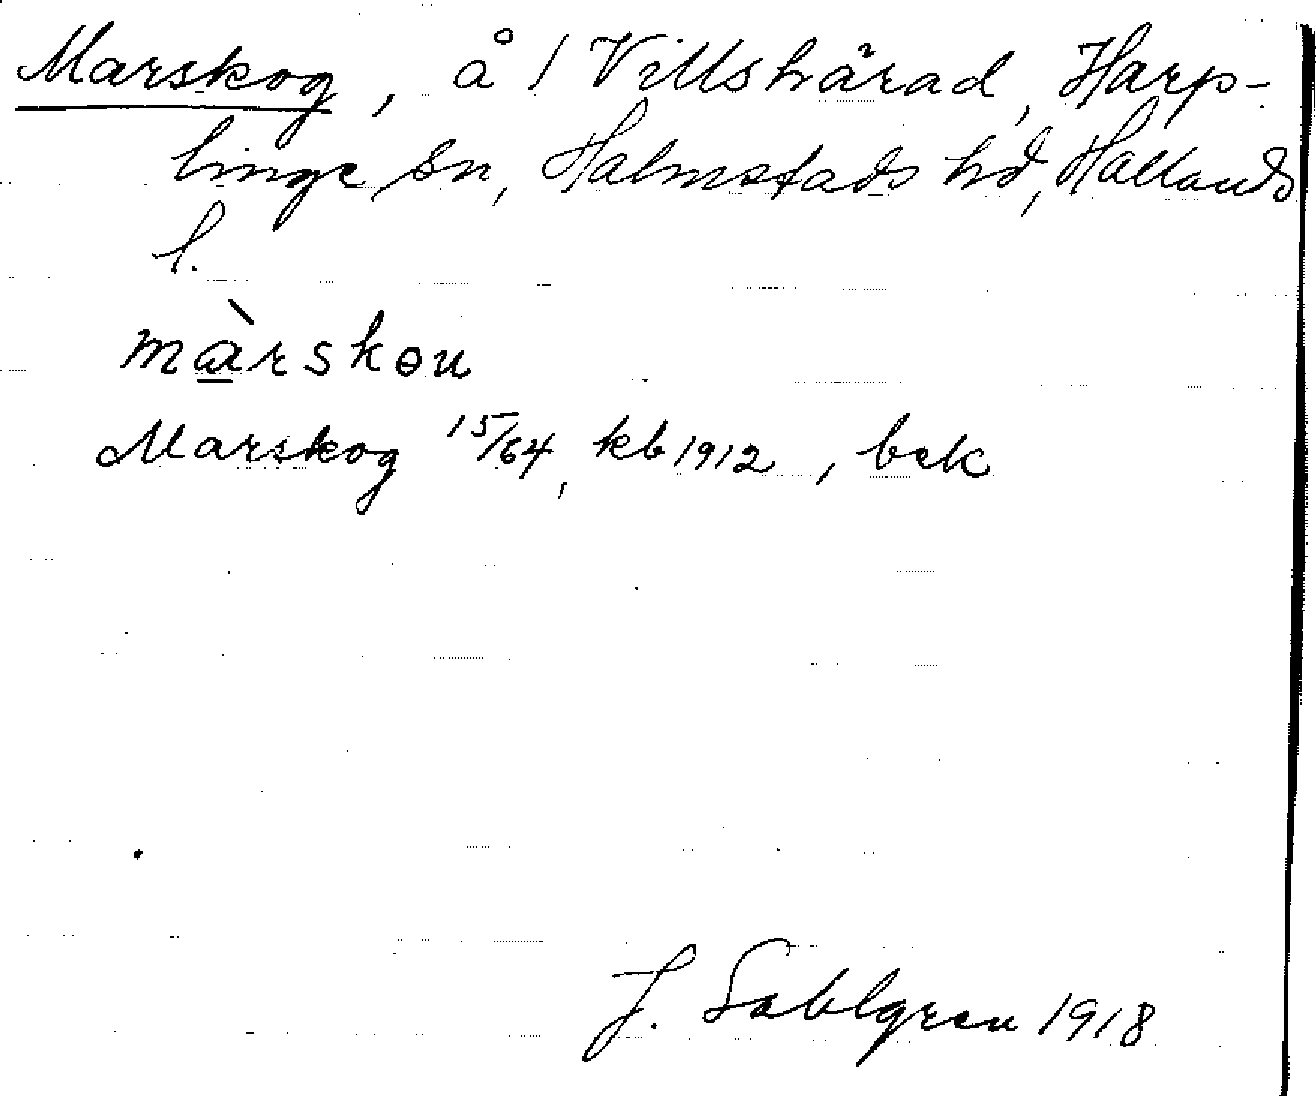 Marskog, å 1 Villshärad, Harp-
linge sn, Halmstads hd, Hallands
l.
màrskɵu
Marskog 15/64, kb 1912, bek
J. Sahlgren 1918